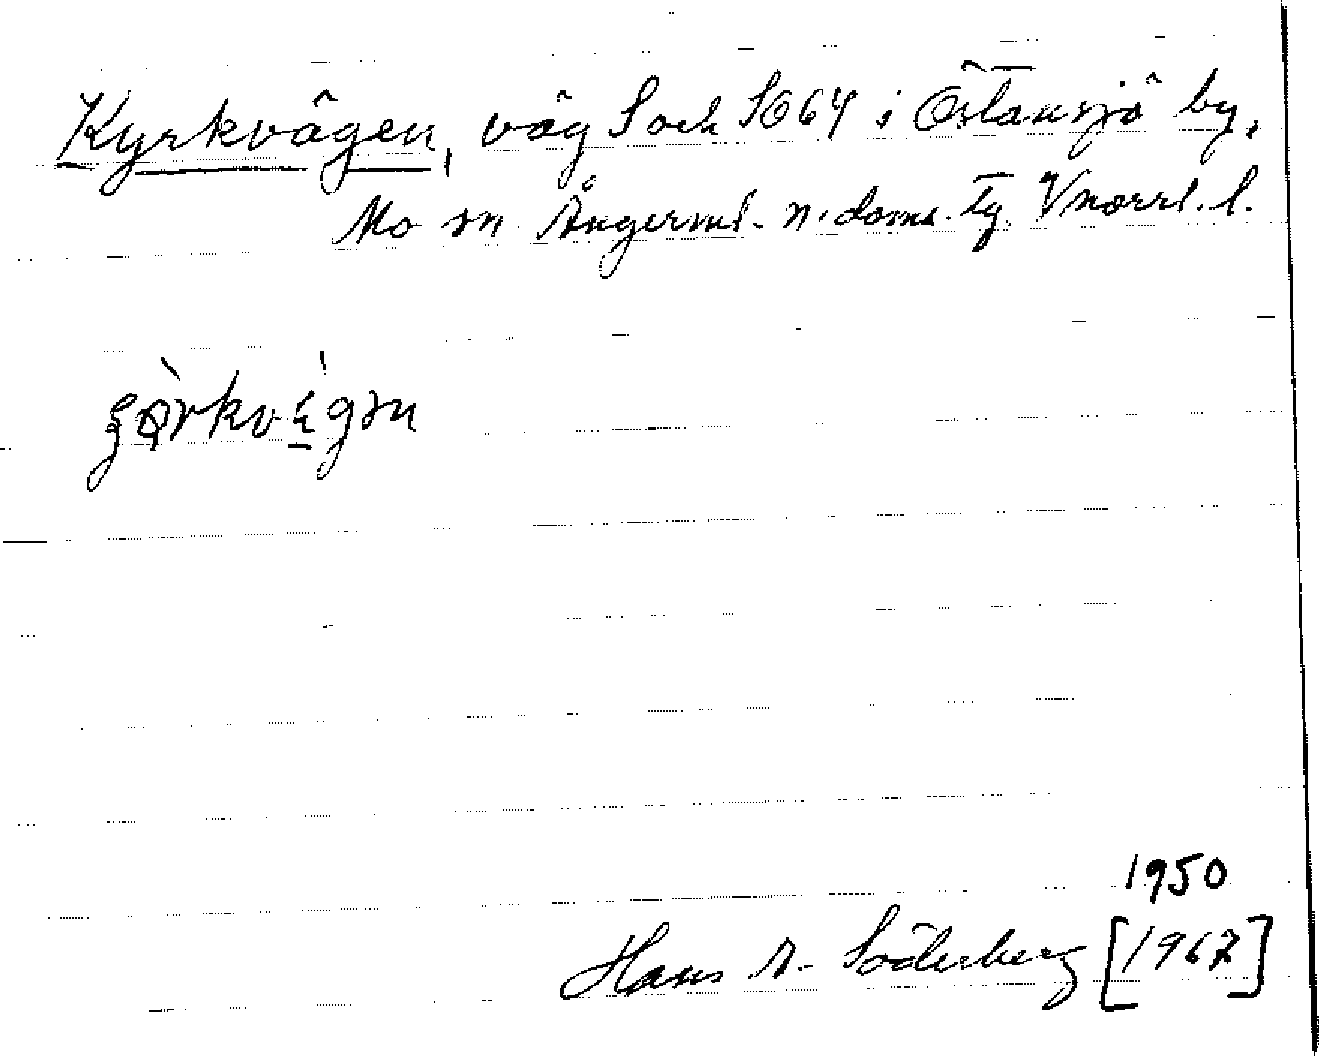 Kyrkvägen, väg S och SO 64 i Östansjö by,
Mo sn Ångerml. n. doms. tg. Vnorrl. l.
1950
Hans A. Söderberg [1967]